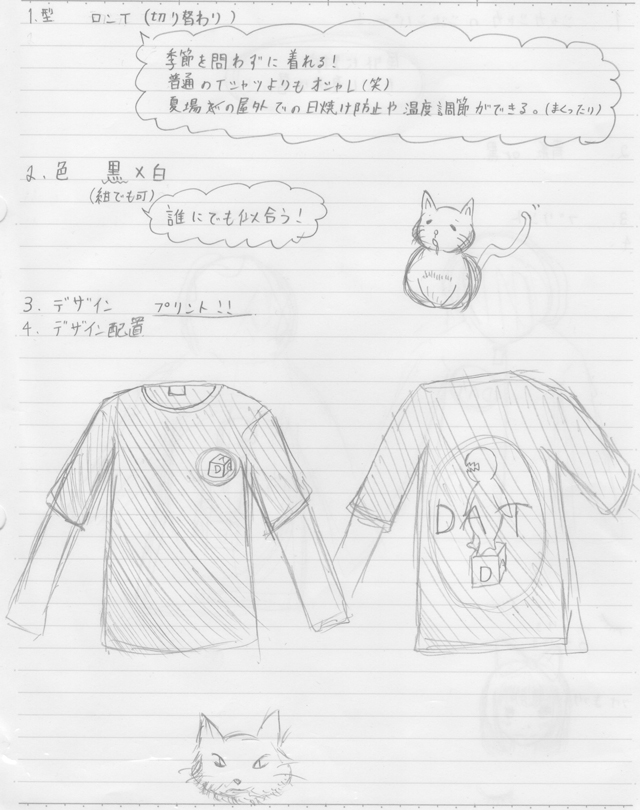 1.型 ロンT(切り替わり)
季節を問わずに着れる!
普通のTシャツよりもオシャレ(笑)
夏場などの屋外での日焼け防止や温度調節ができる。(まくったり)
2.色 黒×白
(紺でも可)
誰にでも似合う!
3.デザイン プリント!!
4.デザイン配置
D
DAT
D